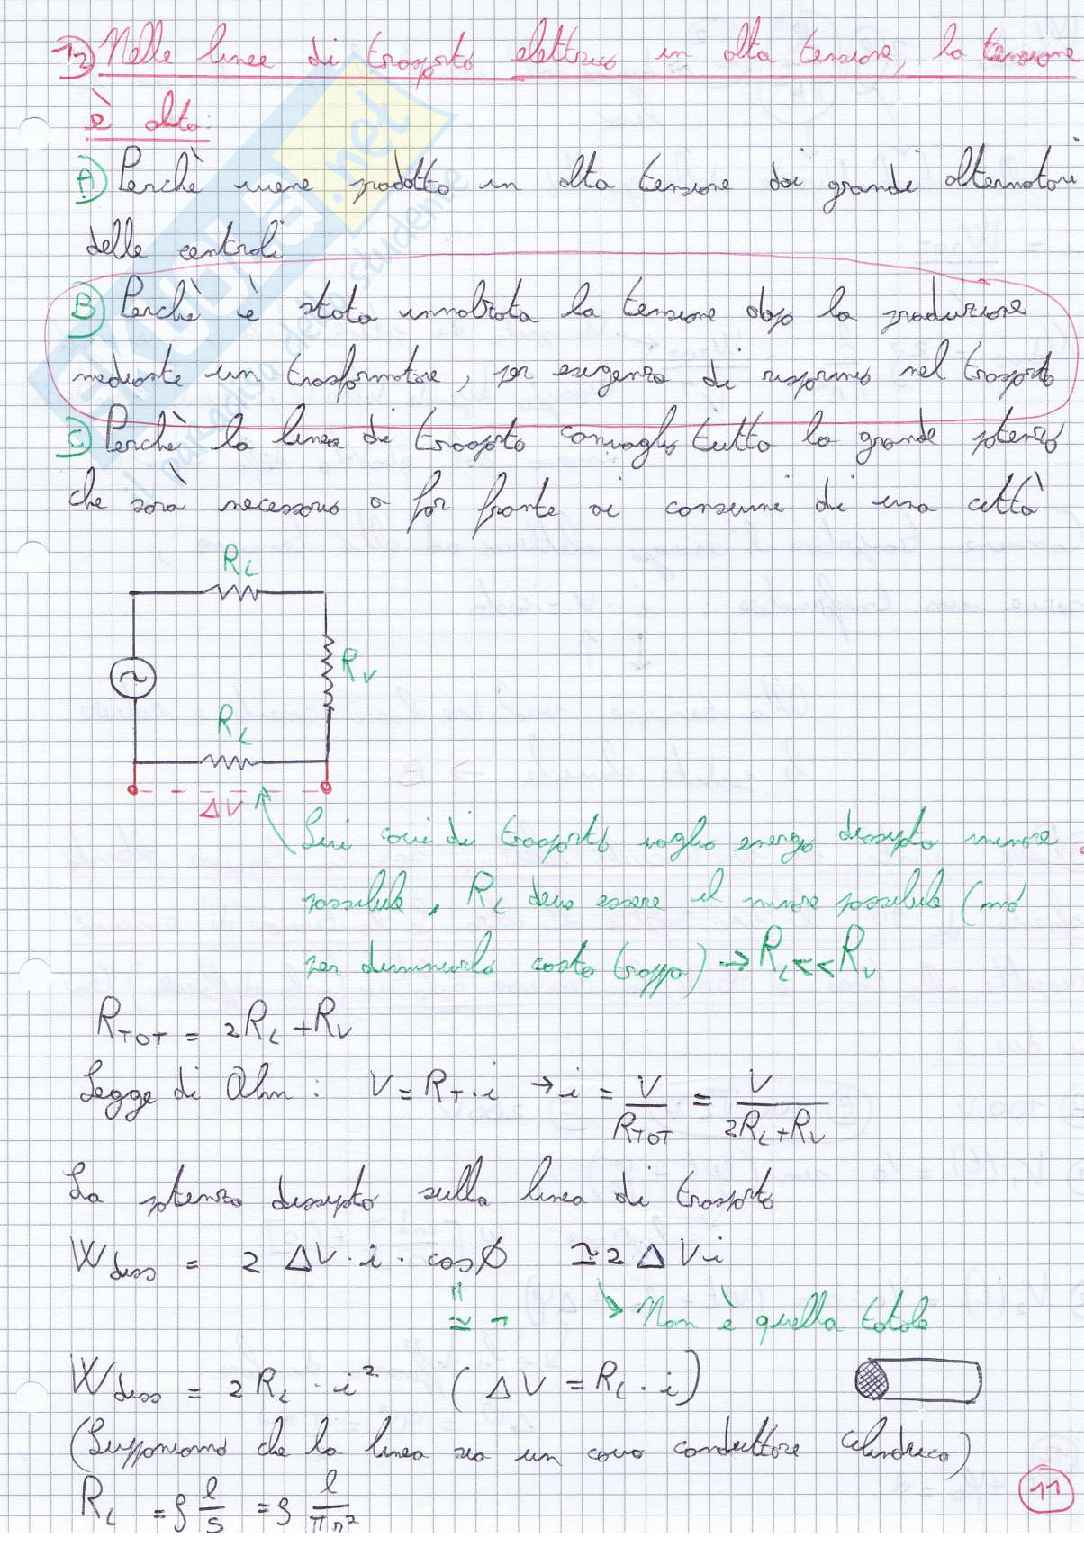 12) Nelle linee di trasporto elettrico in alta tensione, la tensione
è alta:
A) Perchè viene prodotta in alta tensione dai grandi alternatori
delle centrali
B) Perchè è stata innalzata la tensione dopo la produzione
mediante un trasformatore, per esigenza di risparmio nel trasporto
C) Perchè la linea di trasporto convoglia tutta la grande potenza
che sarà necessaria a far fronte ai consumi di una città
R_L
R_V
R_L
ΔV
Sui cavi di trasporto voglio energia dissipata minore
possibile, R_L deve essere il minore possibile (ma
per diminuirla costa troppo) → R_L << R_V
R_TOT = 2R_L + R_V
Legge di Ohm: V = R_T · i → i = V/R_TOT = V/(2R_L + R_V)
La potenza dissipata sulla linea di trasporto
W_diss = 2 ΔV · i · cosφ ≃ 2 ΔV i
≃ 1 → Non è quella totale
W_diss = 2 R_L · i² (ΔV = R_L · i)
(Supponiamo che la linea sia un cavo conduttore cilindrico)
R_L = ρ l/S = ρ l/(π r²)
11